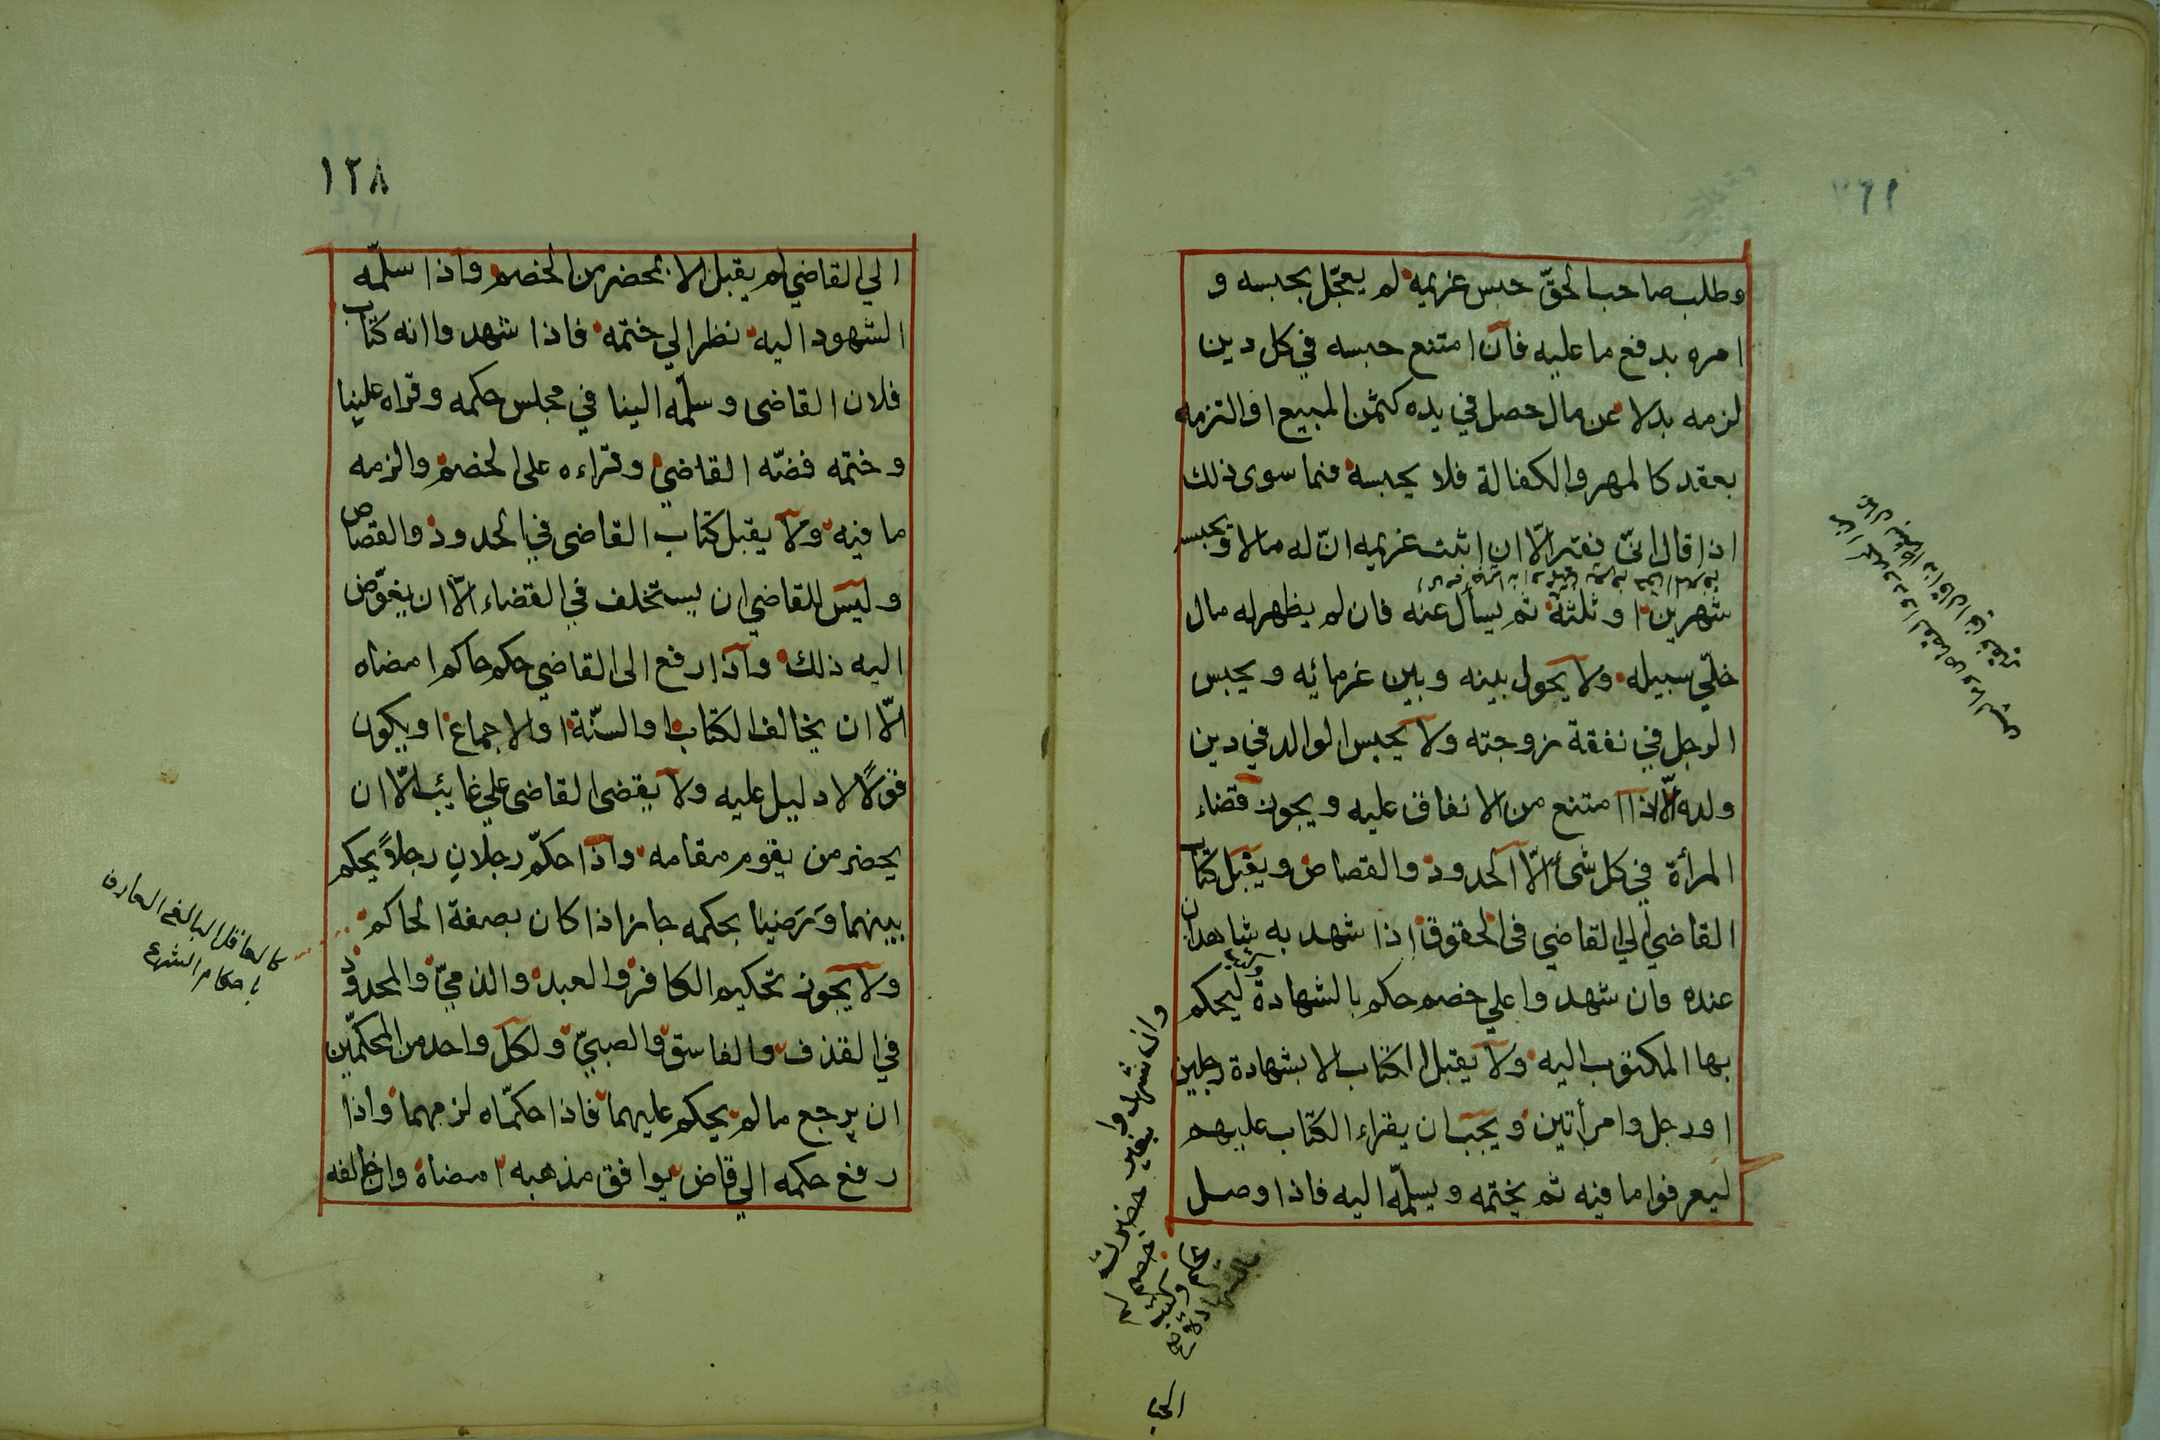 وطلب صاحب الحقّ حبس غريمه لم يعجّل بحبسه و
امره بدفع ما عليه فان امتنع حبسه في كل دين
لزمه بدلا عن مال حصل في يده كثمن المبيع او التزمه
بعقد كالمهر والكفالة فلا يحبسه فيما سوى ذلك
اذا قال انّي فقير الّا ان اثبت غريمه انّ له مالا ويحبسه
شهرين او ثلثة ثم يسأل عنه فان لم يظهر له مال
خلّي سبيله ولا يحول بينه وبين غرمائه ويحبس
الرجل في نفقة زوجته ولا يحبس الوالد في دين
ولده الّا اذا امتنع من الانفاق عليه ويجوز قضاء
المرأة في كل شئ الّا الحدود والقصاص ويقبل كتاب
القاضي الي القاضي في الحقوق اذا شهد به شاهدان
عنده فان شهدوا علي خصم حكم بالشهادة ليحكم
بها المكتوب اليه ولا يقبل الكتاب الا بشهادة رجلين
او رجل وامرأتين ويجب ان يقراء الكتاب عليهم
ليعرفوا ما فيه ثم يختمه ويسلّمه اليه فاذا وصل
وان شهدوا بغير حضرة
خصم لم
يحكم وكتب
بالشهادة
الي
١٢٨
الي القاضي لم يقبل الا بمحضر من الخصم واذا سلّمه
الشهود اليه نظر الي ختمه فاذا شهدوا انه كتاب
فلان القاضى وسلّمه الينا في مجلس حكمه وقراه علينا
وختمه فضّه القاضي وقراءه على الخصم والزمه
ما فيه ولا يقبل كتاب القاضى في الحدود والقصاص
وليس للقاضي ان يستخلف في القضاء الّا ان يفوّض
اليه ذلك واذا رفع الى القاضي حكم حاكم امضاه
الّا ان يخالف الكتاب او السنّة او الاجماع او يكون
قولًا لا دليل عليه ولا يقضى القاضى علي غايب الّا ان
يحضر من يقوم مقامه واذا حكّم رجلانِ رجلاً يحكم
بينهما وَرَضيَا بحكمه جاز اذا كان بصفة الحاكم
ولا يجوز تحكيم الكافر والعبد والذميّ والمحدود
في القذف والفاسق والصبيّ ولكل واحد من المحكّمين
ان يرجع ما لم يحكم عليهما فاذا حكمّاه لزمهما واذا
رفع حكمه الي قاض يوافق مذهبه امضاه وان خالفه
كالعاقل البالغ العارف
باحكام الشرع